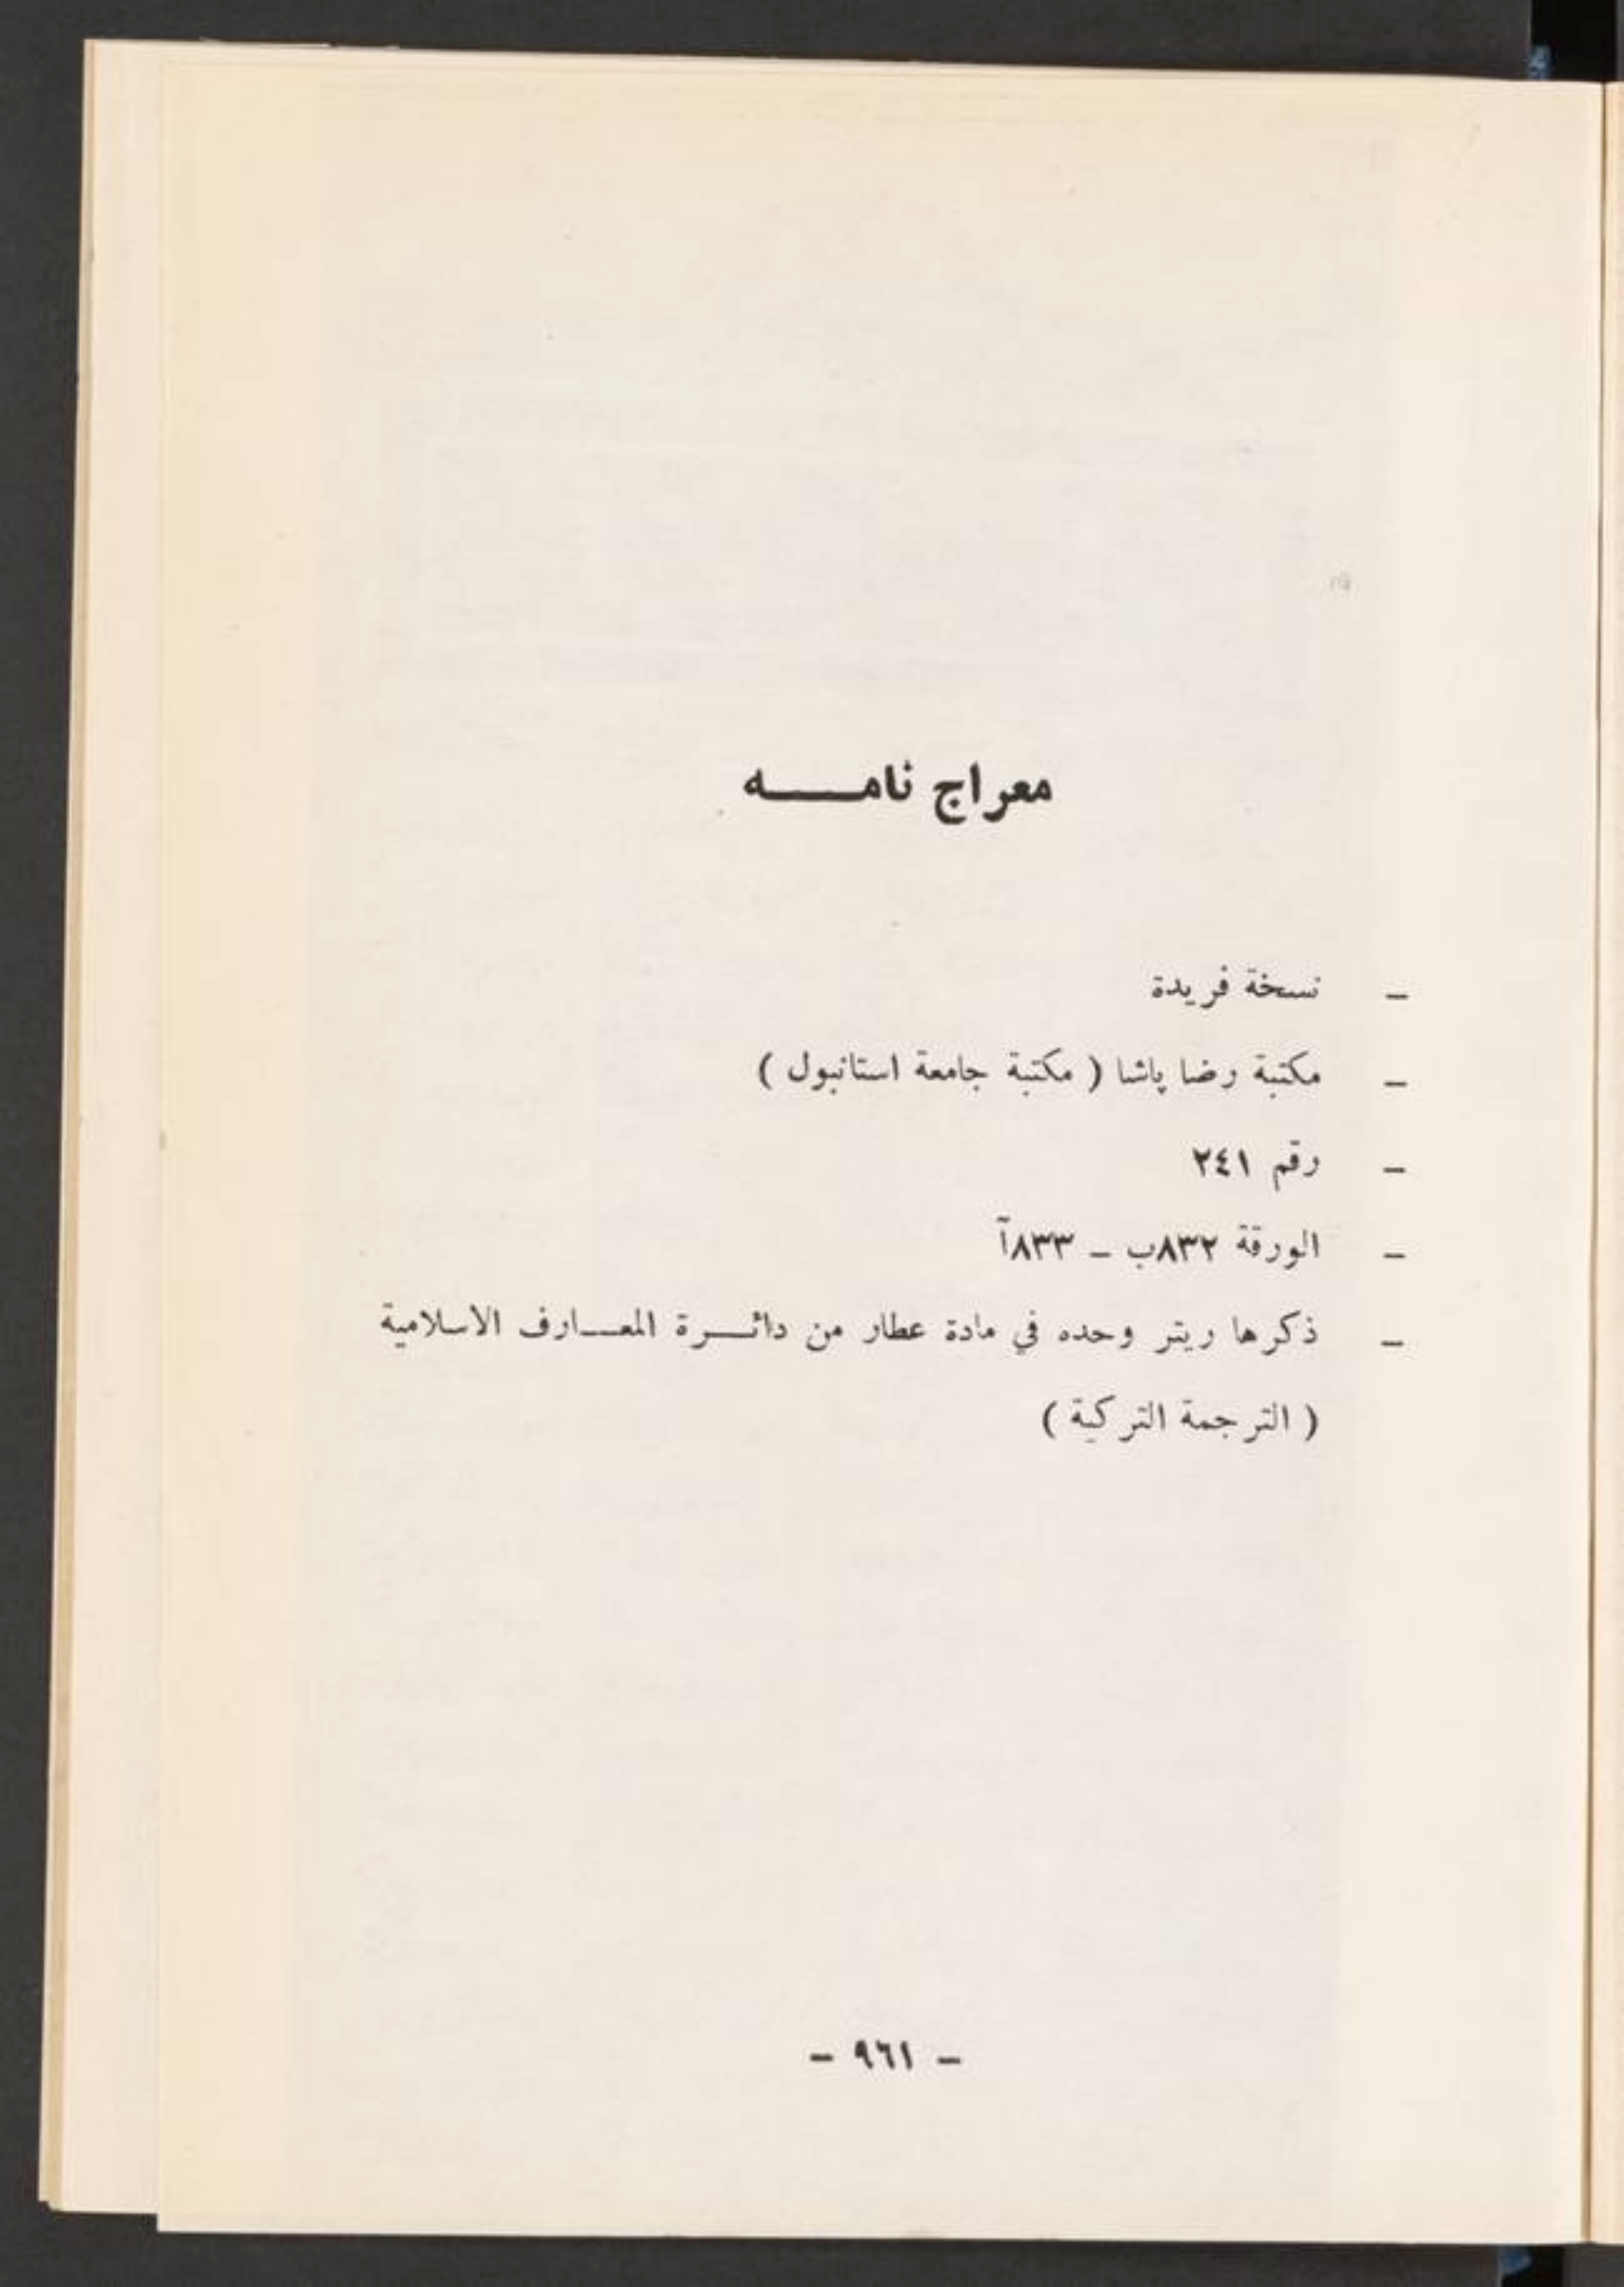 معراج نامـــــه
– نسخة فريدة
– مكتبة رضا پاشا ( مكتبة جامعة استانبول )
– رقم ٢٤١
– الورقة ٨٣٢ب – ٨٣٣آ
– ذكرها ريتر وحده في مادة عطار من دائـــرة المعــارف الاسلامية
( الترجمة التركية )
– ٩٦١ –